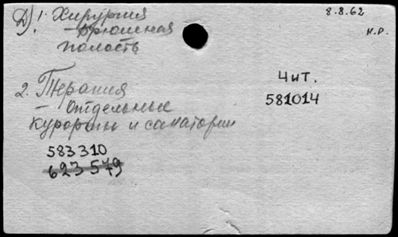 Д) 1. Хирургия
8.8.62
– Брюшная
полость
н.р.
2. Терапия
– Отдельные
курорты и санатории
Чит.
581014
583310
623579